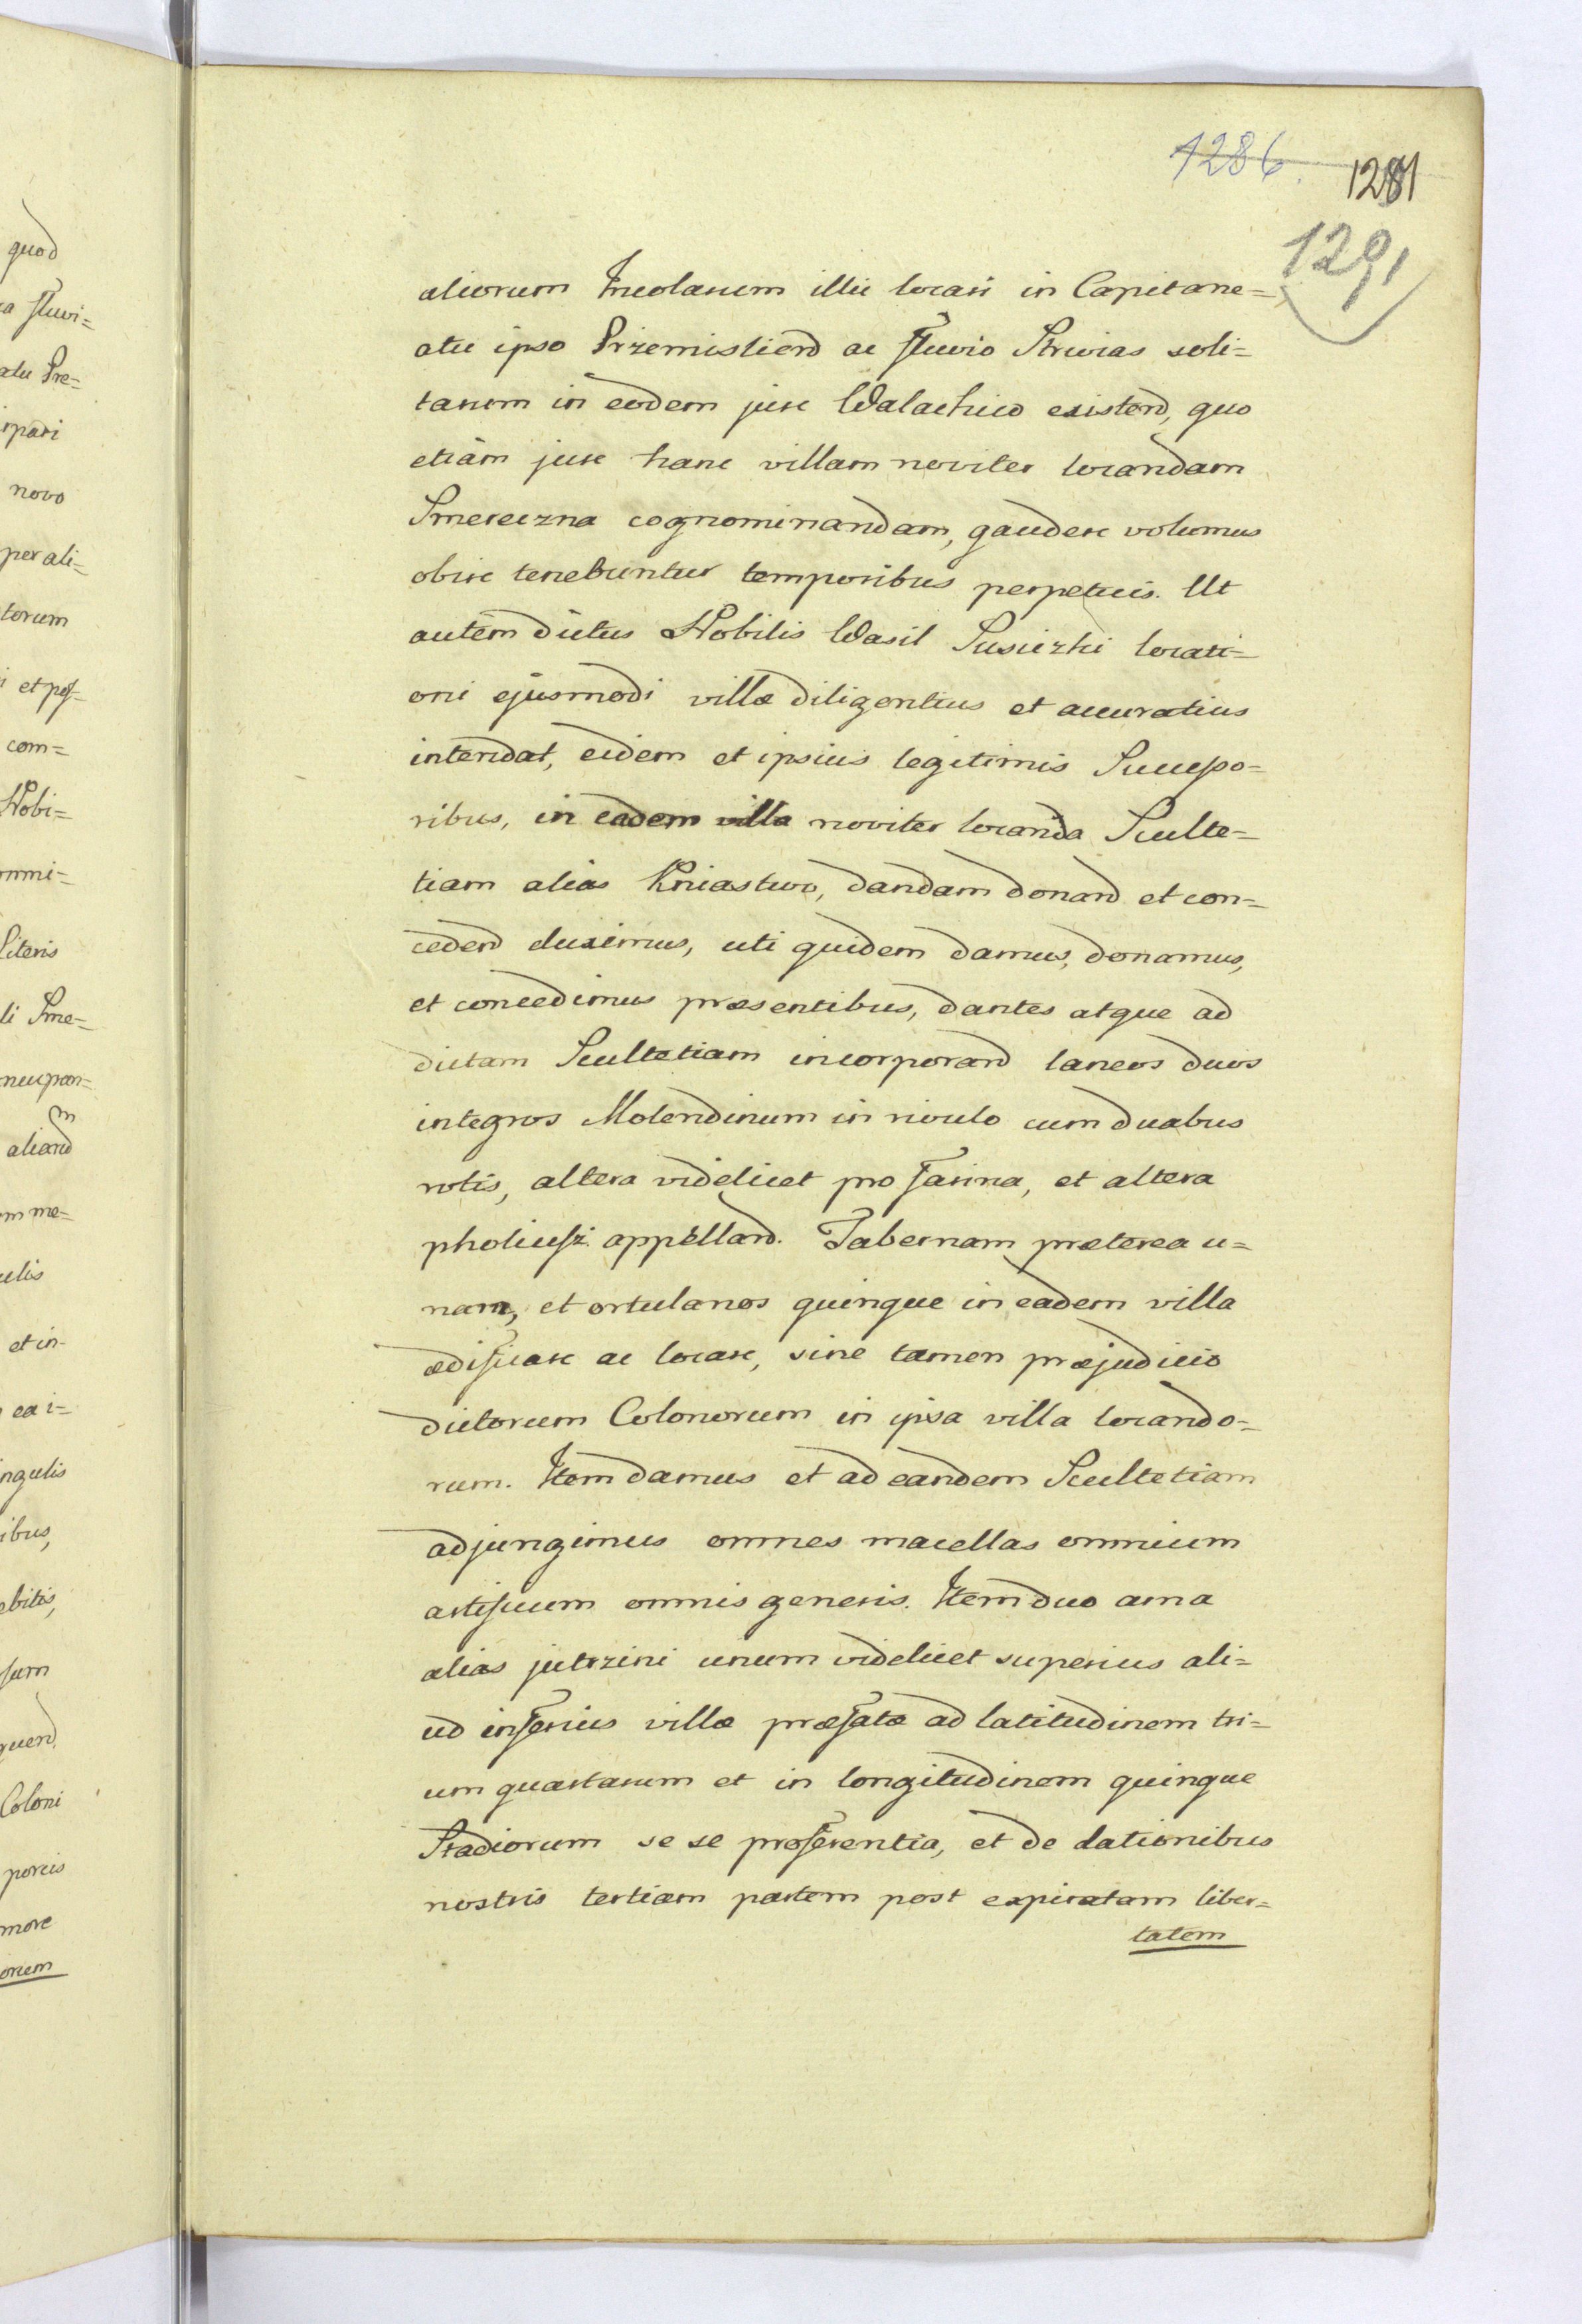 1286.
1281
1291
aliorum Incolarum illic locari in Capitane=
atu ipso Przemisliend ac fluvio Strwias soli=
tarum in eodem jure Walachico existend, quo
etiam jure hanc villam noviter locandam
Smereczna cognominandam, gaudere volumus
obire tenebuntur temporibus perpetuis. Ut
autem dictus Nobilis Wasil Susiczki locati=
oni ejusmodi villæ diligentius et accuratius
intendat, eidem et ipsius legitimis Successo=
ribus, in eadem villa noviter locanda Sculte=
tiam alias Kniastwo, dandam donand et con=
cedend duximus, uti quidem damus, donamus,
et concedimus præsentibus, dantes atque ad
dictam Scultetiam incorporand laneos duos
integros Molendinum in rivulo cum duabus
rotis, altera videlicet pro farina, et altera
pholiusz appelland. Tabernam præterea u=
nam, et ortulanos quinque in eadem villa
ædificare ac locare, sine tamen præjudicio
dictorum Colonorum in ipsa villa locando=
rum. Item damus et ad eandem Scultetiam
adjungimus omnes macellas omnium
artificum omnis generis. Item duo arva
alias jutrzini unum videlicet superius ali=
ud inferius villæ præfatæ ad latitudinem tri=
um quartarum et in longitudinem quinque
Stadiorum se se proferentia, et de dationibus
nostris tertiam partem post expiratam liber=
tatem
quod
fluvi=
atu Pre=
novo
per ali=
torum
et pos=
com=
Nobi=
Literis
li Sme=
aliand
et in=
ea i=
Coloni
porcis
more